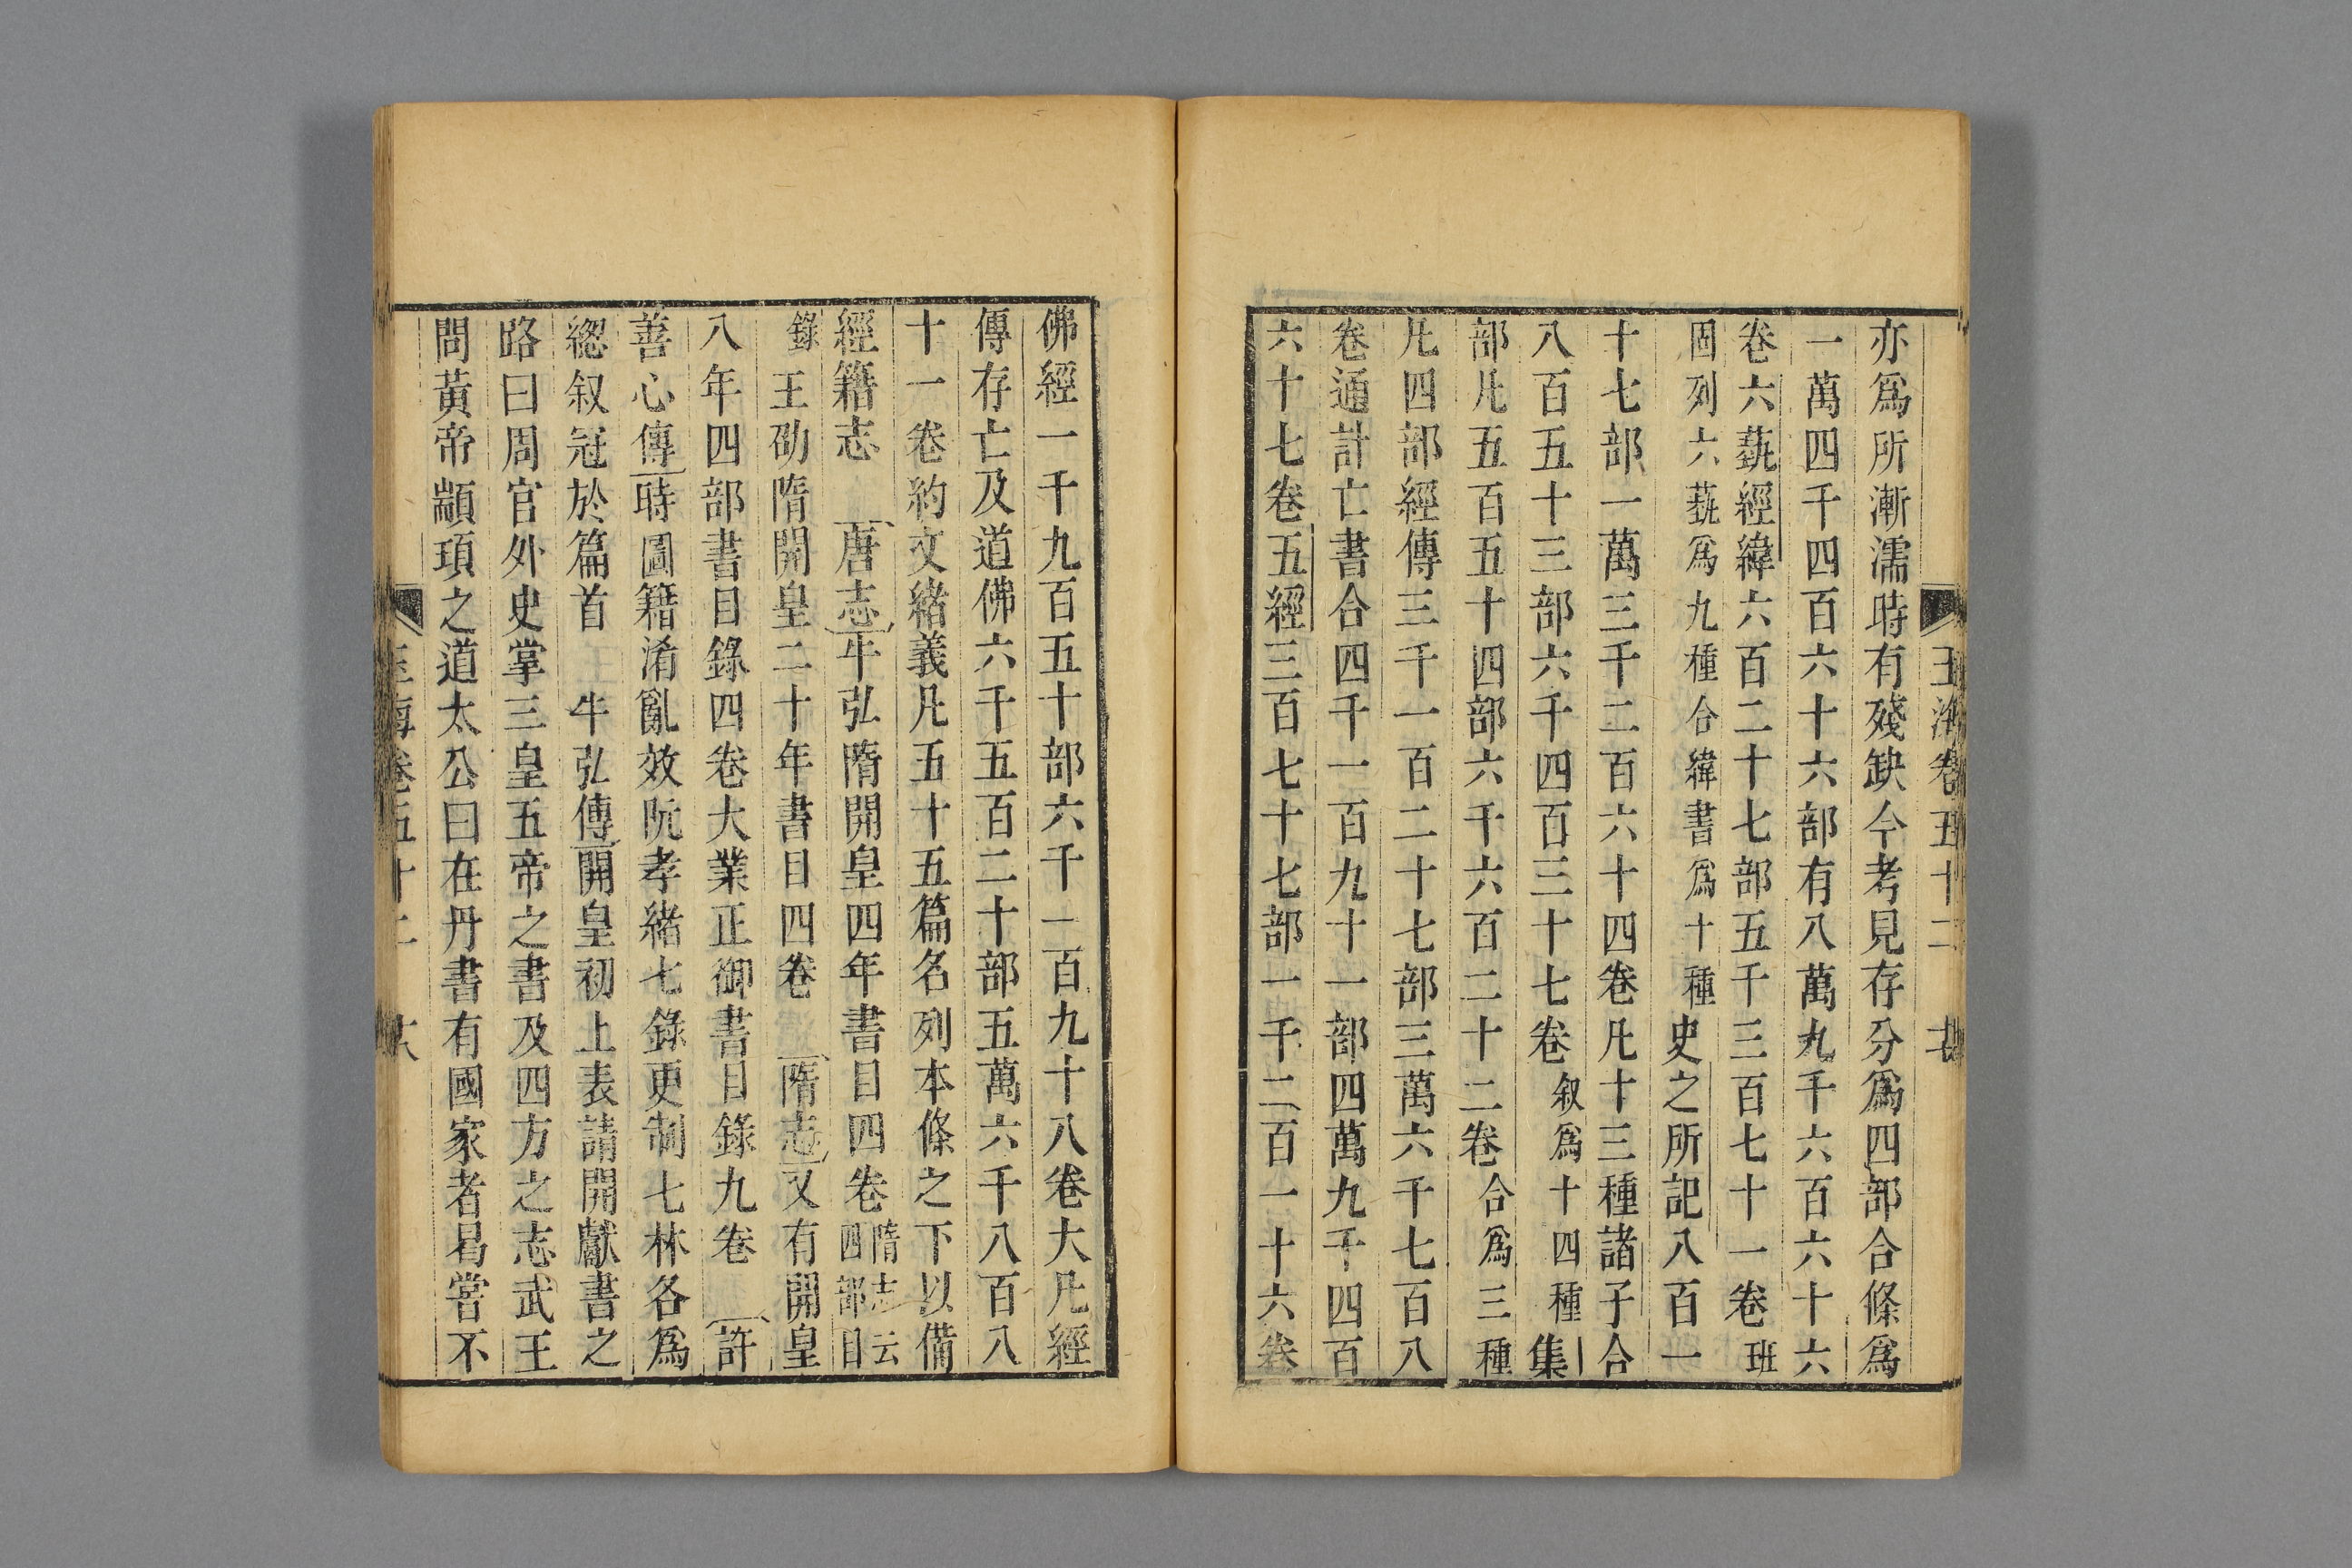 玉海卷五十二
亦爲所漸濡時有殘缺今考見存分爲四部合條爲
一萬四千四百六十六部有八萬九千六百六十六
卷六蓺經緯六百二十七部五千三百七十一卷班
固列六蓺爲九種合緯書爲十種史之所記八百一
十七部一萬三千二百六十四卷凡十三種諸子合
八百五十三部六千四百三十七卷叙爲十四種集
部凡五百五十四部六千六百二十二卷合爲三種
凡四部經傳三千一百二十七部三萬六千七百八
卷通計亡書合四千一百九十一部四萬九千四百
六十七卷五經三百七十七部一千二百一十六卷
佛經一千九百五十部六千一百九十八卷大凡經
傳存亡及道佛六千五百二十部五萬六千八百八
十一卷約文緒義凡五十五篇名列本條之下以備
經籍志 唐志牛弘隋開皇四年書目四卷隋志云四部目
錄王劭隋開皇二十年書目四卷 隋志又有開皇
八年四部書目錄四卷大業正御書目錄九卷 許
善心傳時圖籍淆亂效阮孝緒七錄更制七林各爲
緫叙冠於篇首 牛弘傳開皇初上表請開獻書之
路曰周官外史掌三皇五帝之書及四方之志武王
問黃帝顓頊之道太公曰在丹書有國家者曷嘗不
玉海卷五十二